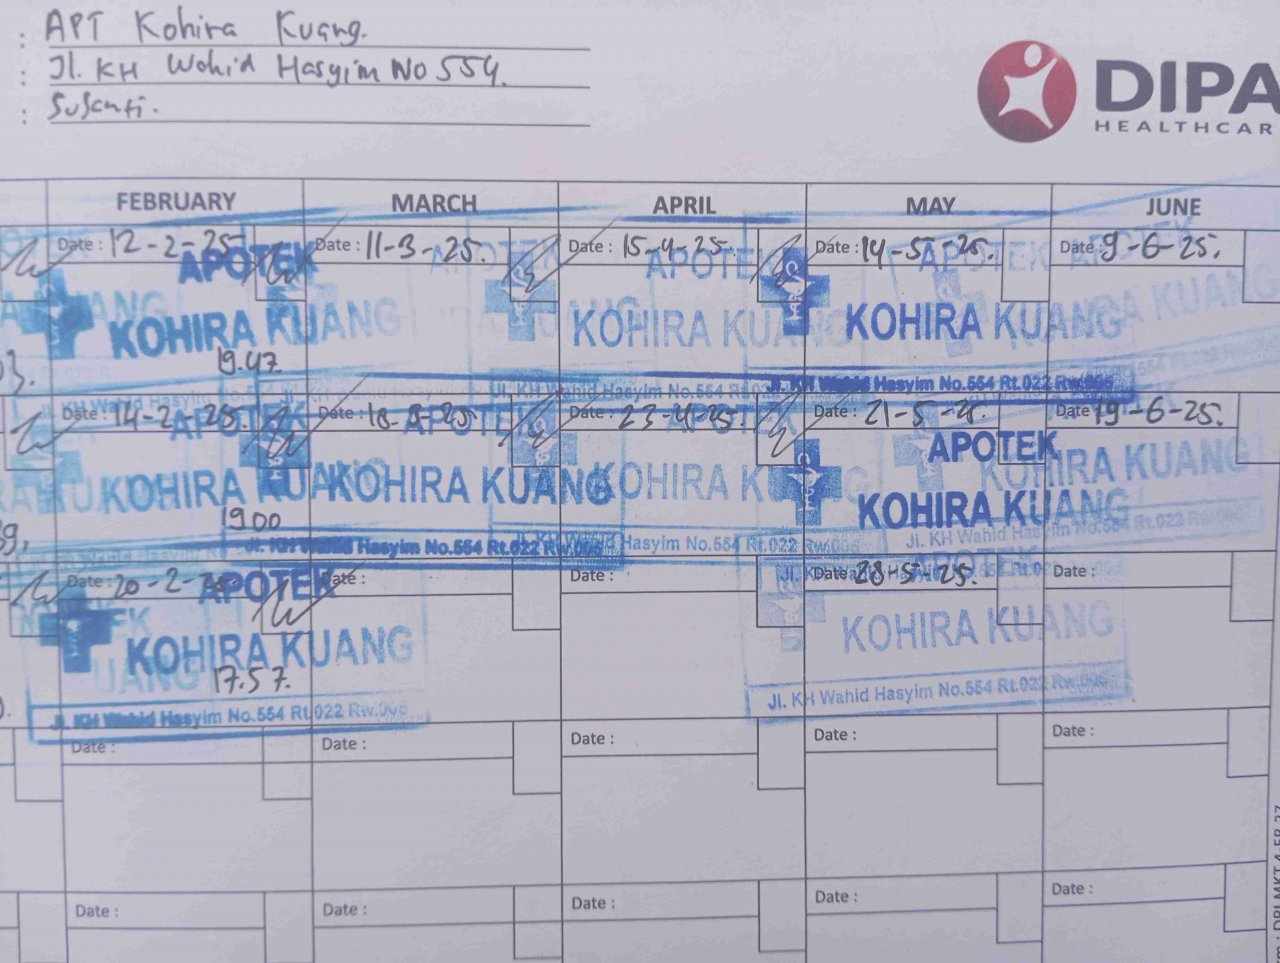 : APT Kohira Kuang.
: Jl. KH Wahid Hasyim No 554.
: Susanti.
DIPA
HEALTHCAR
FEBRUARY MARCH APRIL MAY JUNE
Date : 12-2-25 Date : 11-3-25. Date : 15-4-25. Date : 14-5-25. Date : 9-6-25.
APOTEK APOTEK APOTEK APOTEK APOTEK
KOHIRA KUANG KOHIRA KUANG KOHIRA KUANG KUANG
19.47
Jl. KH Wahid Hasyim No.554 Jl. KH Wahid Hasyim No.554 Rt.022 Rw.006
Date : 14-2-25. Date : 18-3-25 Date : 23-4-25. Date : 21-5-25. Date 19-6-25.
APOTEK APOTEK APOTEK APOTEK
KOHIRA KUANG KOHIRA KUANG KOHIRA KUANG KOHIRA KUANG KOHIRA KUANG
19.00
Jl. KH Wahid Hasyim No.554 Rt.022 Rw.006 Jl. KH Wahid Hasyim No.554 Rt.022 Rw.006 Jl. KH Wahid Hasyim No.554 Rt.022 Rw.006
Date : 20-2-25 Date : Date : Date : 28-5-25. Date :
APOTEK APOTEK
KOHIRA KUANG KOHIRA KUANG
17.57.
Jl. KH Wahid Hasyim No.554 Rt.022 Rw.006 Jl. KH Wahid Hasyim No.554 Rt.022 Rw.006
Date : Date : Date : Date : Date :
Date : Date : Date : Date : Date :